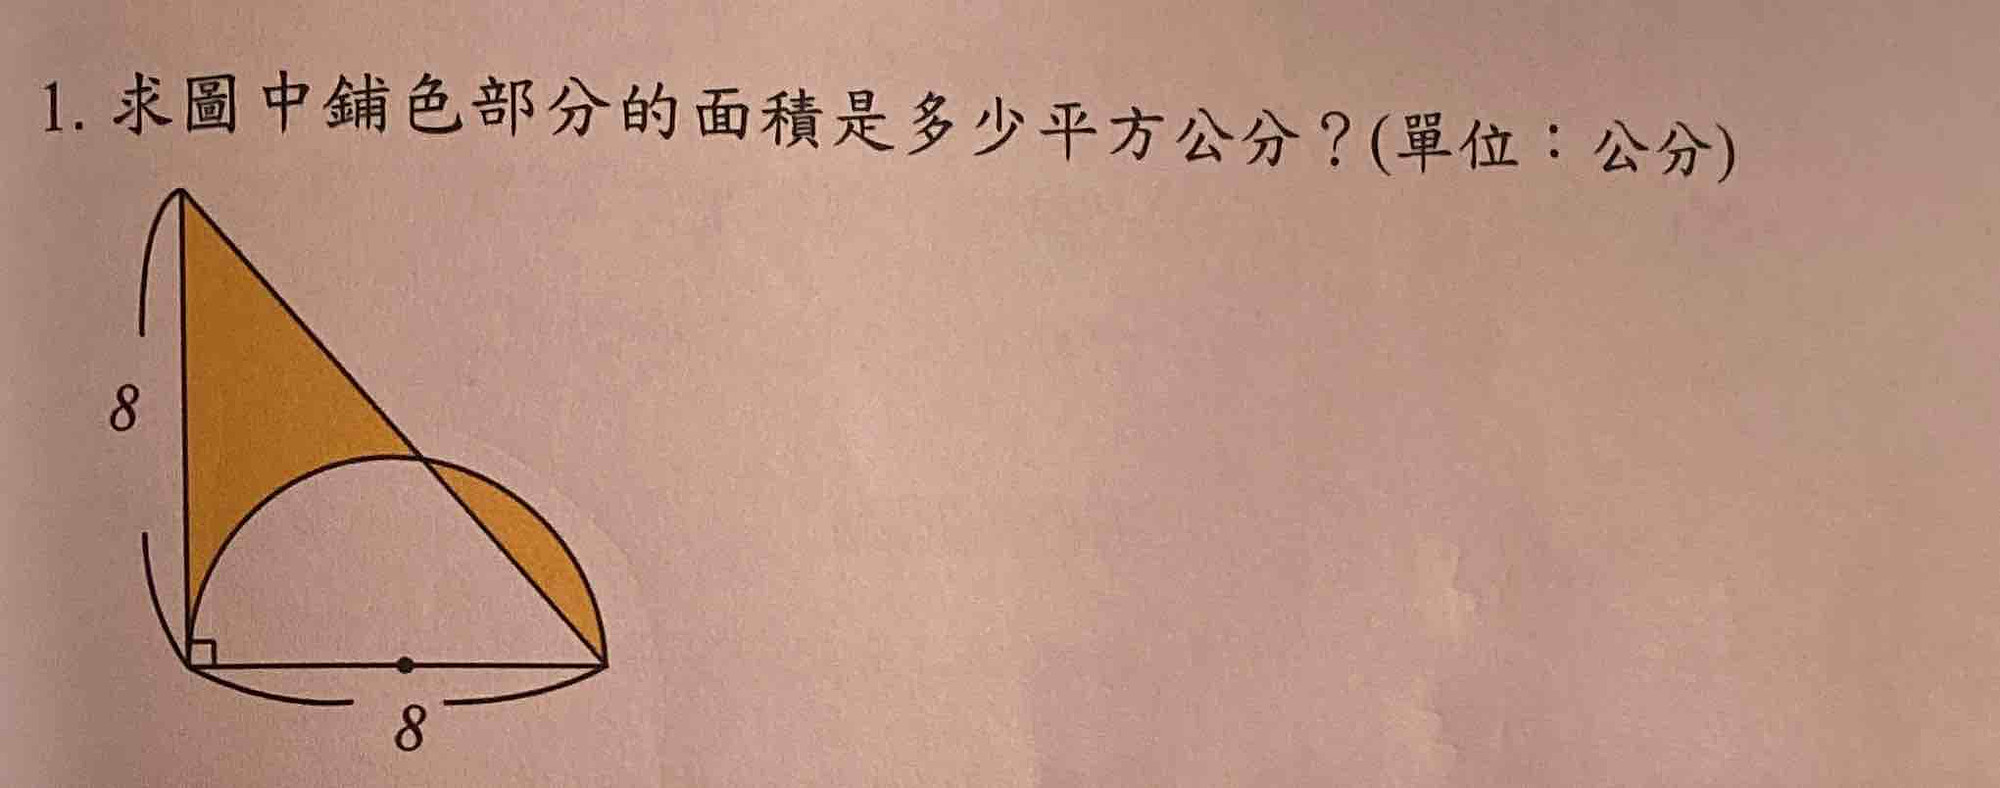 1. 求圖中鋪色部分的面積是多少平方公分？(單位：公分)
8
8